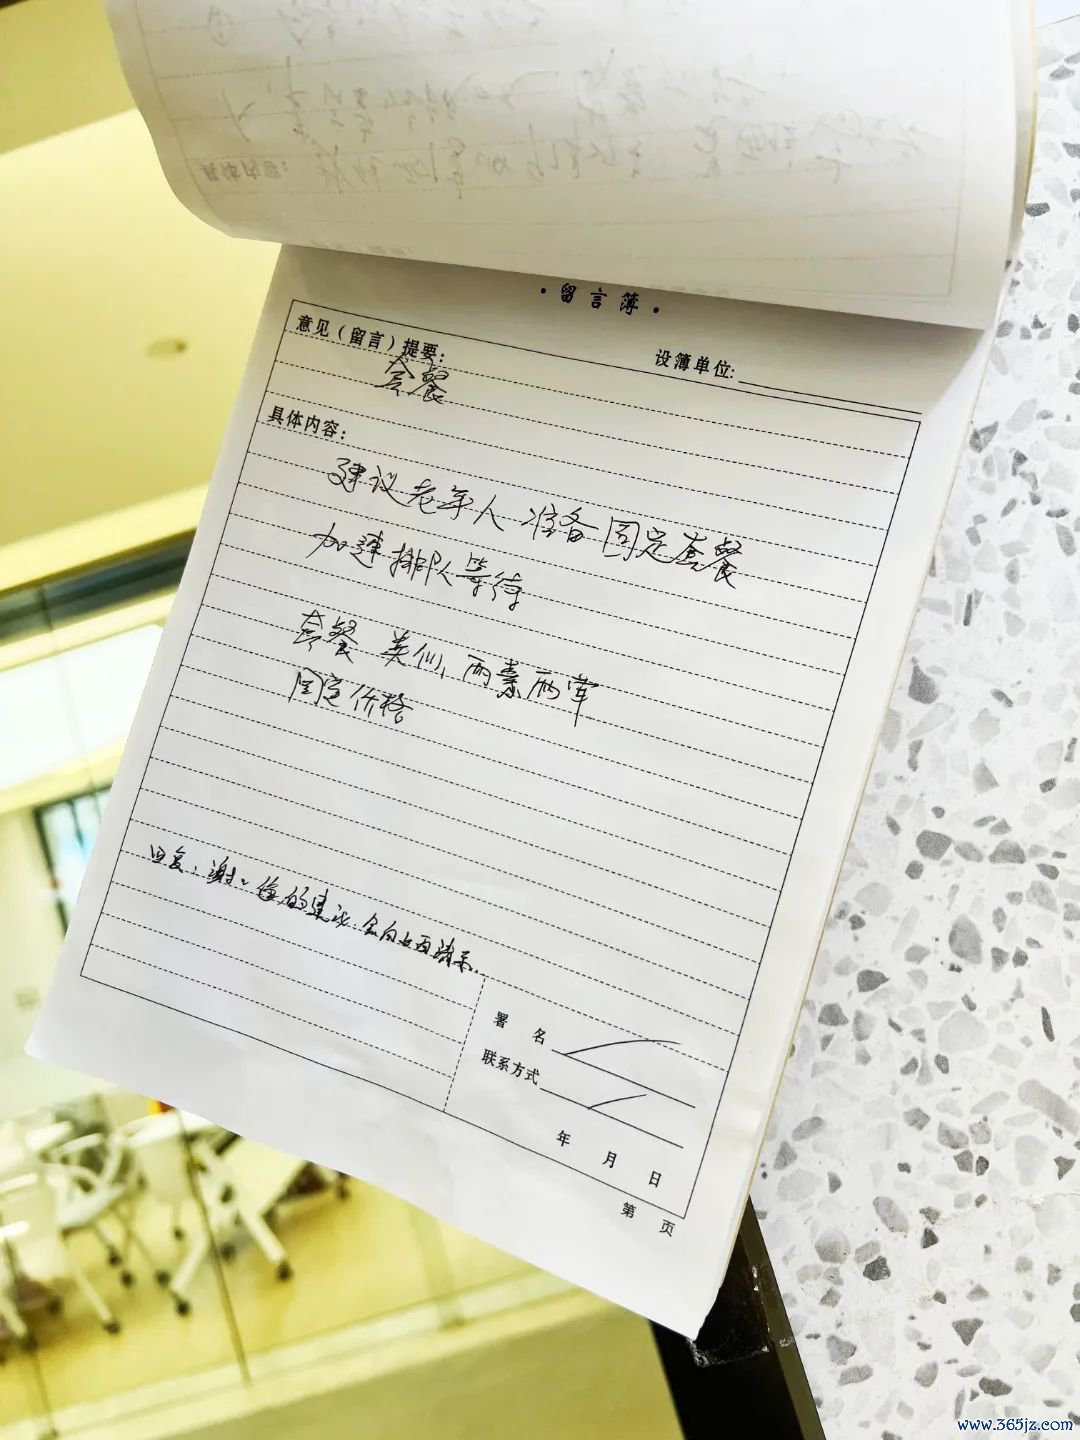 ·留言簿·
设簿单位:
意见（留言）提要:
套餐
具体内容:
建议老年人准备固定套餐
加速排队等待
套餐类似、两素两荤
固定价格
回复：谢谢您的建议.会向上面请示.
署 名
联系方式
年 月 日
第 页
www.365jz.com